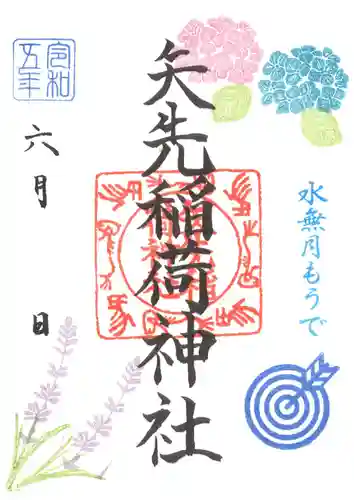 令和
五年
水無月もうで
矢先稲荷神社
六月
日